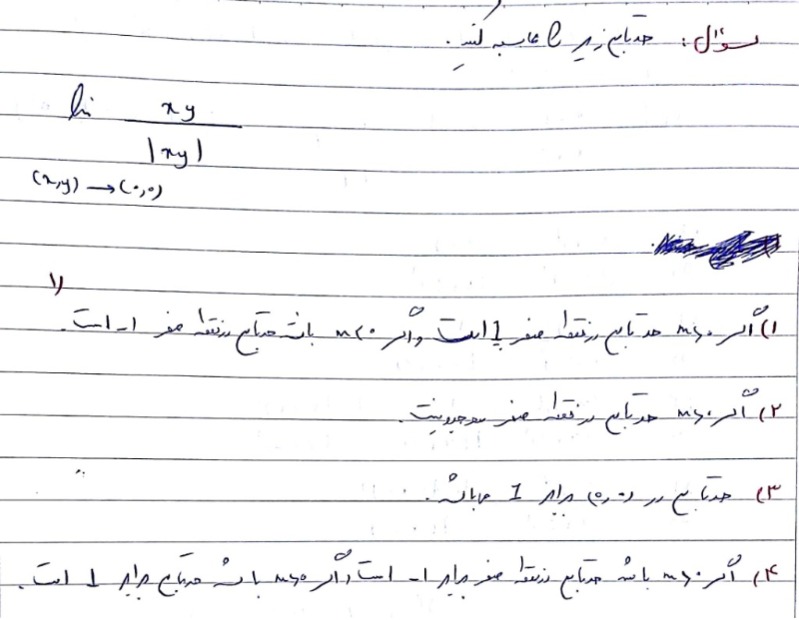 سوال: حد تابع زیر را محاسبه کنید.
lim xy
|xy|
(x,y)→(۰,۰)
۱) اگر m>۰ حد تابع در نقطه صفر 1 است و اگر m<۰ باشد حد تابع در نقطه صفر ۱- است.
۲) اگر m>۰ حد تابع در نقطه صفر موجود نیست.
۳) حد تابع در (۰,۰) برابر 1 میباشد.
۴) اگر m>۰ باشد حد تابع در نقطه صفر برابر ۱- است و اگر m>۰ باشد حد تابع برابر 1 است.